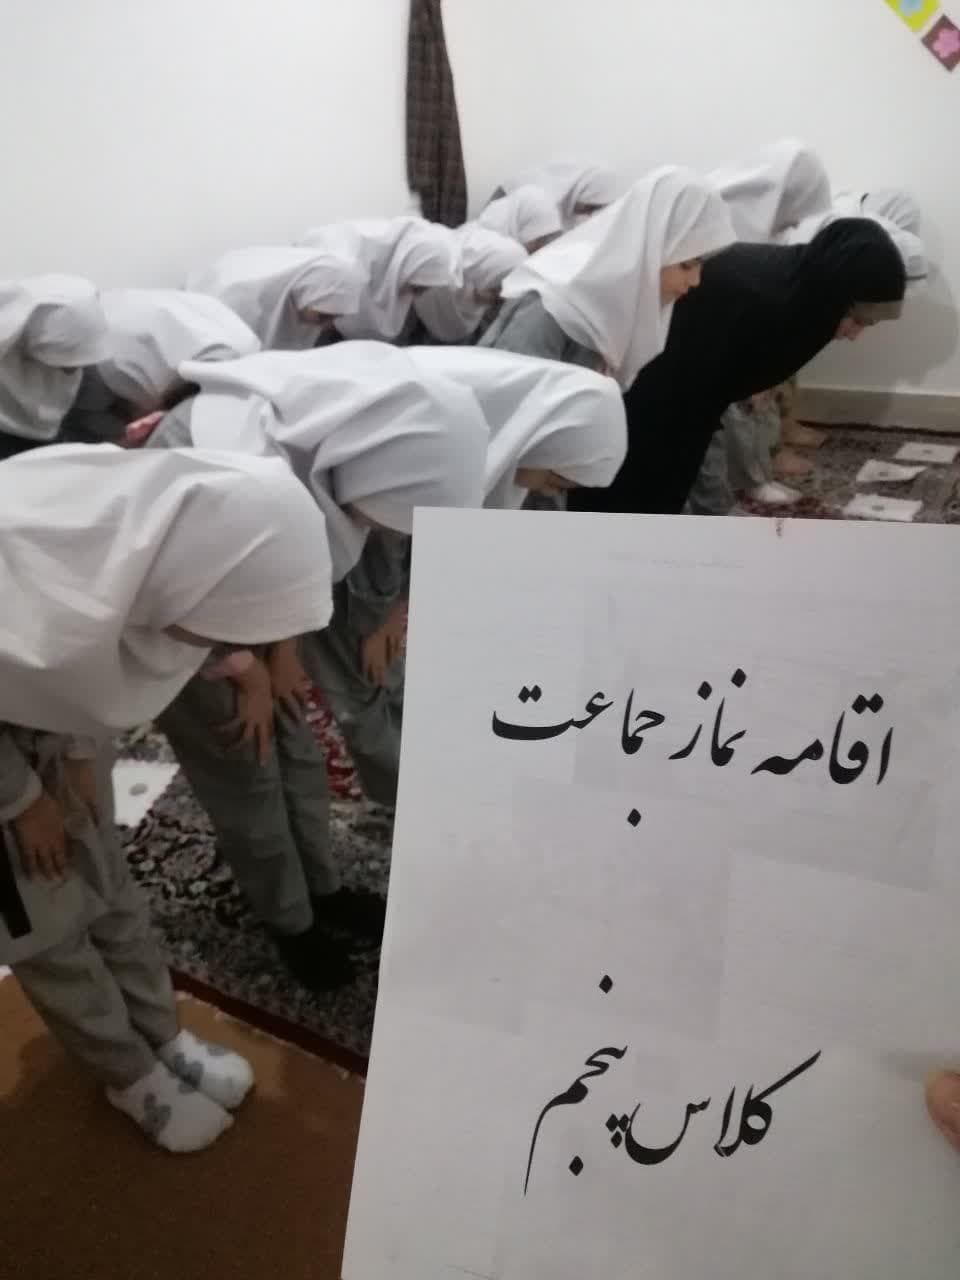 اقامه نماز جماعت
کلاس پنجم